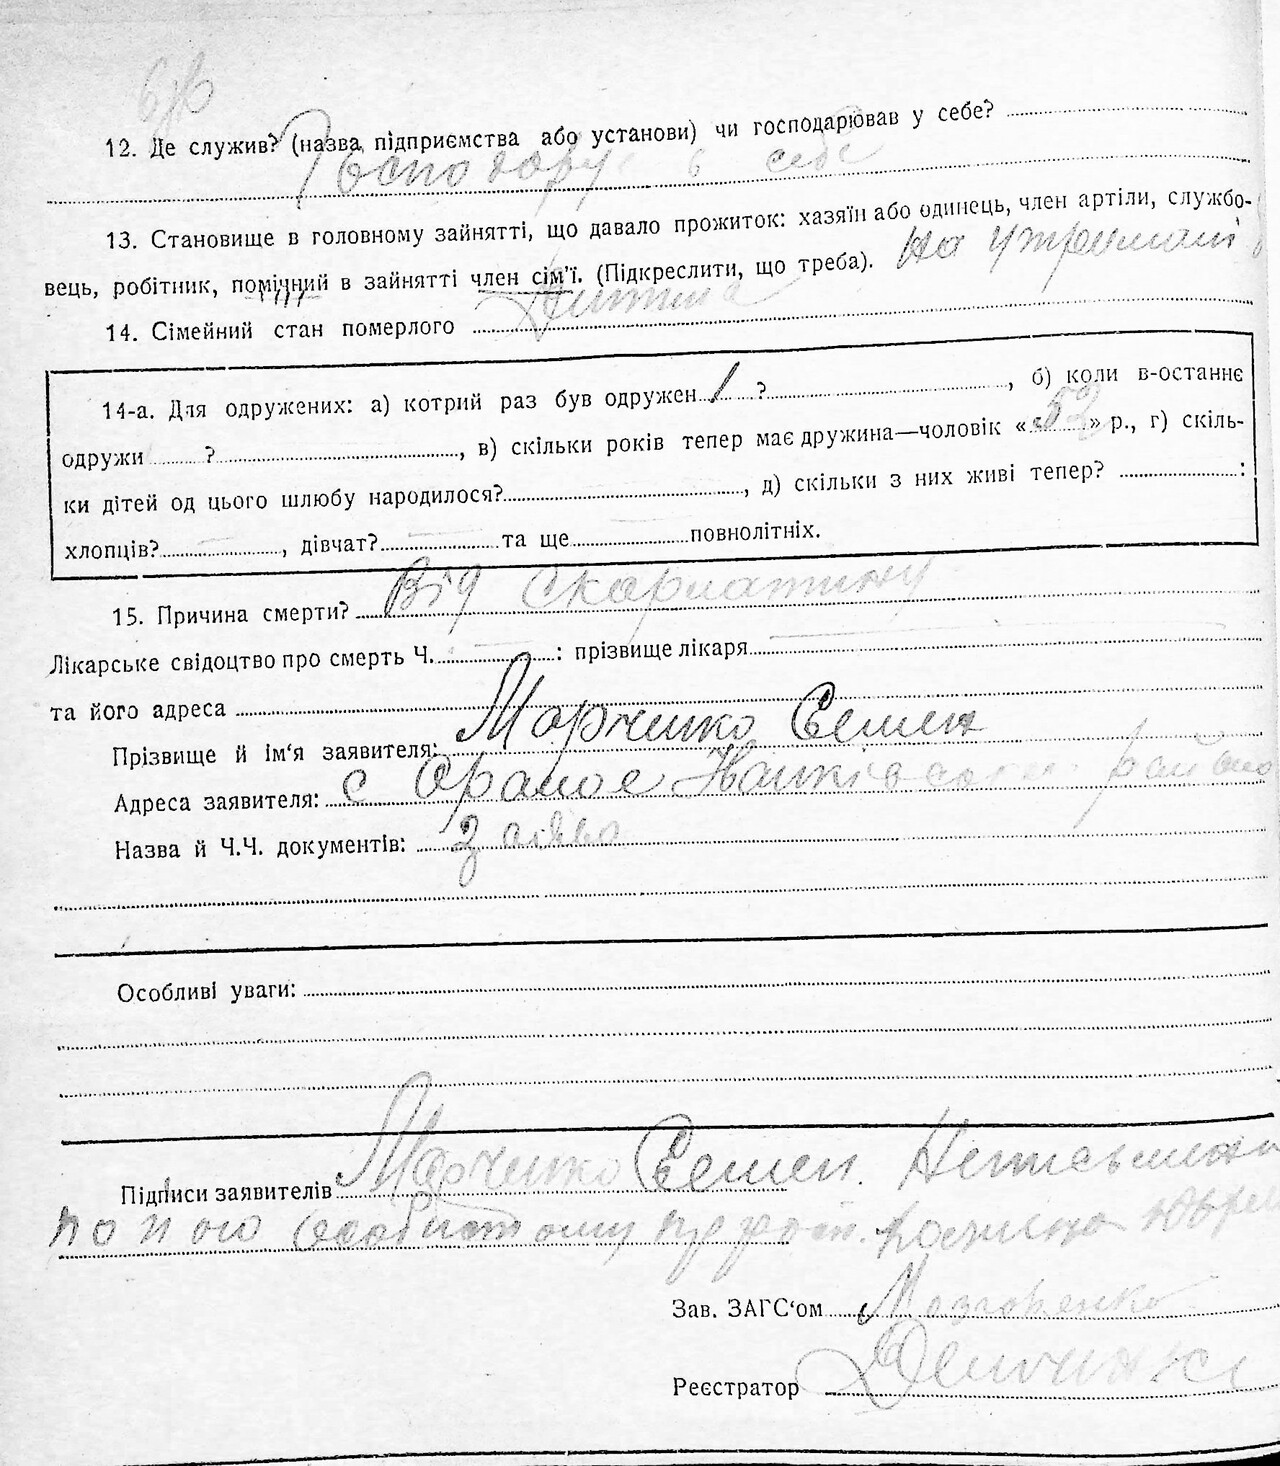 12. Де служив? (назва підприємства або установи) чи господарював у себе?
Господарує в себе
13. Становище в головному зайнятті, що давало прожиток: хазяїн або одинець, член артіли, службо-
вець, робітник, помічний в зайнятті член сім'ї. (Підкреслити, що треба). На утриманні
14. Сімейний стан померлого Дитина
14-а. Для одружених: а) котрий раз був одружен ?, б) коли в-останнє
одружи ?, в) скільки років тепер має дружина—чоловік « » р., г) скіль-
ки дітей од цього шлюбу народилося?, д) скільки з них живі тепер? :
хлопців?, дівчат? та ще повнолітніх.
15. Причина смерти? Від скарлатину
Лікарське свідоцтво про смерть Ч. : прізвище лікаря
та його адреса
Прізвище й ім'я заявителя: Марченко Семен
Адреса заявителя: с Ораное району
Назва й Ч.Ч. документів: Заява
Особливі уваги:
Підписи заявителів Марченко Семен.
по його особистому
Зав. ЗАГС'ом
Реєстратор